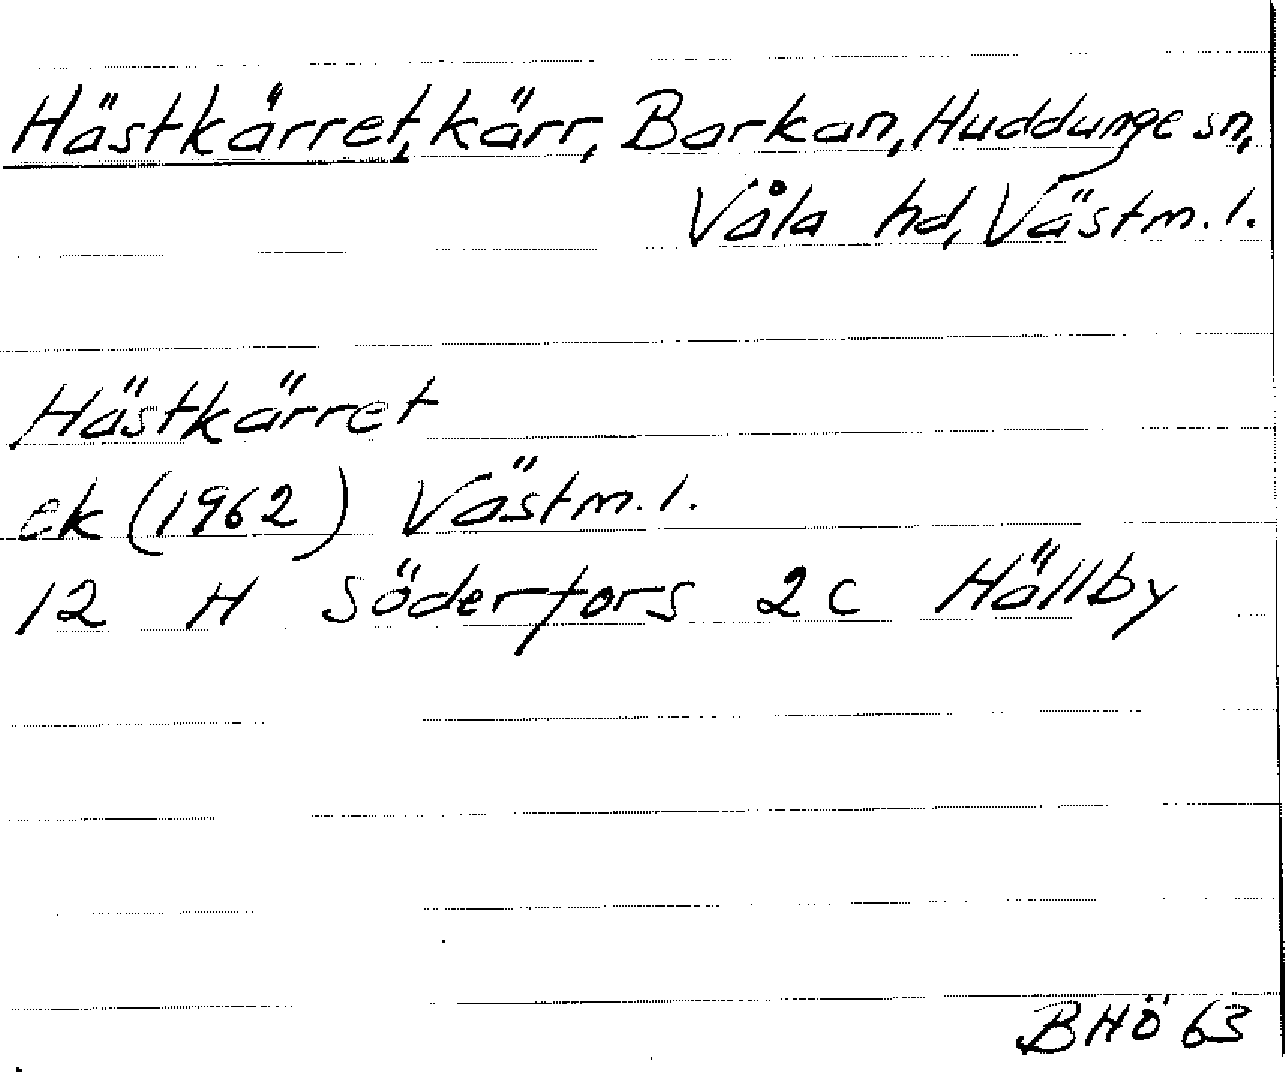 Hästkärret, kärr, Barkan, Huddunge sn,
Våla hd, Västm. l.
Hästkärret
ek (1962) Västm. l.
12 H Söderfors 2 c Hällby
BHÖ 63